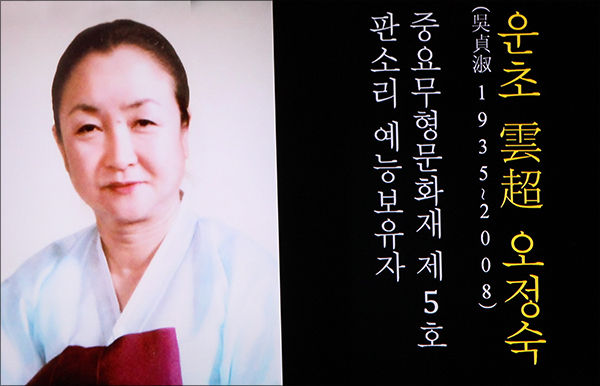 운초 雲超 오정숙
(吳貞淑 1935~2008)
중요무형문화재 제5호
판소리 예능보유자